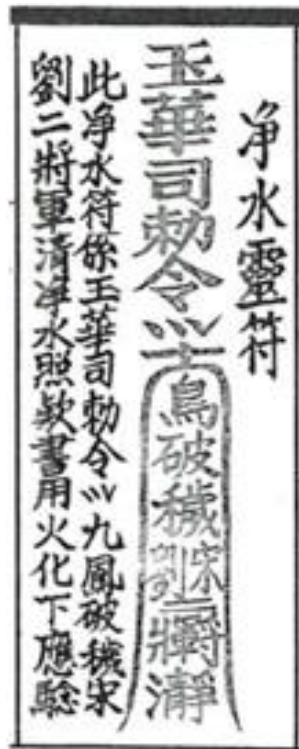 净水靈符
玉華司勅令
鳥破穢宋劉二
此净水符係玉華司勅令灬九鳳破穢宋
劉二將軍清净水照欵書用火化下應驗